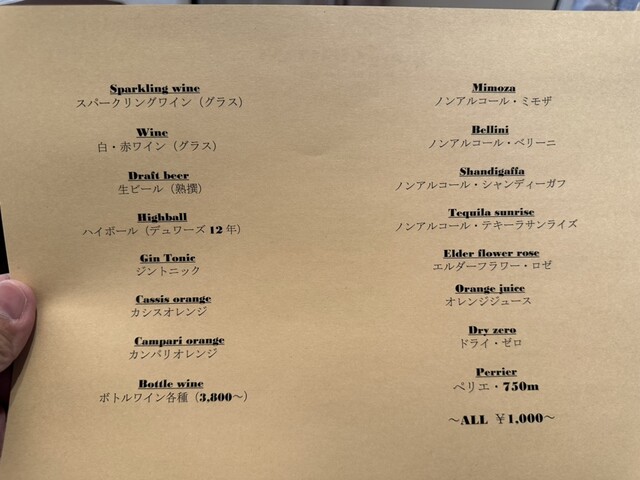 Sparkling wine
スパークリングワイン（グラス）
Wine
白・赤ワイン（グラス）
Draft beer
生ビール（熟撰）
Highball
ハイボール（デュワーズ 12 年）
Gin Tonic
ジントニック
Cassis orange
カシスオレンジ
Campari orange
カンパリオレンジ
Bottle wine
ボトルワイン各種（3,800～）
Mimoza
ノンアルコール・ミモザ
Bellini
ノンアルコール・ベリーニ
Shandigaffa
ノンアルコール・シャンディーガフ
Tequila sunrise
ノンアルコール・テキーラサンライズ
Elder flower rose
エルダーフラワー・ロゼ
Orange juice
オレンジジュース
Dry zero
ドライ・ゼロ
Perrier
ペリエ・750m
～ALL ￥1,000～